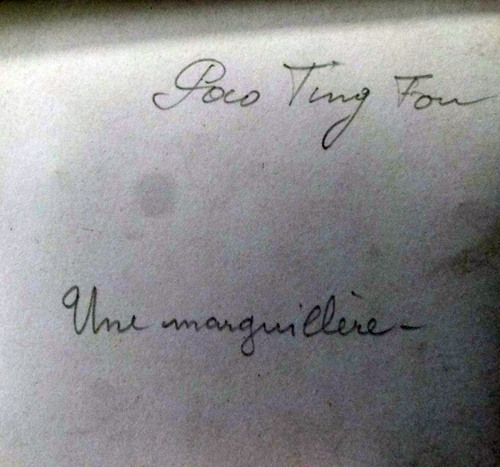 Poco Ting Fou
Une marguillère -